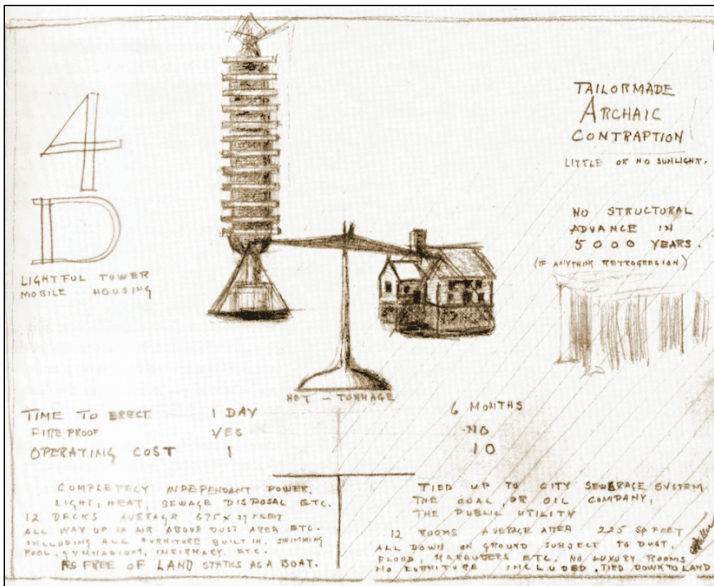 4
D
LIGHTFUL TOWER
MOBILE HOUSING
TAILORMADE
ARCHAIC
CONTRAPTION
LITTLE OR NO SUNLIGHT.
NO STRUCTURAL
ADVANCE IN
5000 YEARS.
(IF ANYTHING RETROGRESSION)
NET - TONNAGE
TIME TO ERECT 1 DAY 6 MONTHS
FIREPROOF YES NO
OPERATING COST 1 10
COMPLETELY INDEPENDANT POWER,
LIGHT, HEAT, SEWAGE DISPOSAL ETC.
12 DECKS AVERAGE 675 FEET
ALL WAY UP IN AIR ABOVE DUST AREA ETC.
INCLUDING ALL FURNITURE BUILT IN, SWIMMING
POOL, GYMNASIUM, INFIRMARY, ETC.
AS FREE OF LAND STATICS AS A BOAT.
TIED UP TO CITY SEWERAGE SYSTEM
THE COAL, OR OIL COMPANY,
THE PUBLIC UTILITY
12 ROOMS AVERAGE AREA 225 SQ FEET
ALL DOWN ON GROUND SUBJECT TO DUST,
FLOOD, MARAUDERS ETC. NO LUXURY ROOMS
NO FURNITURE INCLUDED. TIED DOWN TO LAND